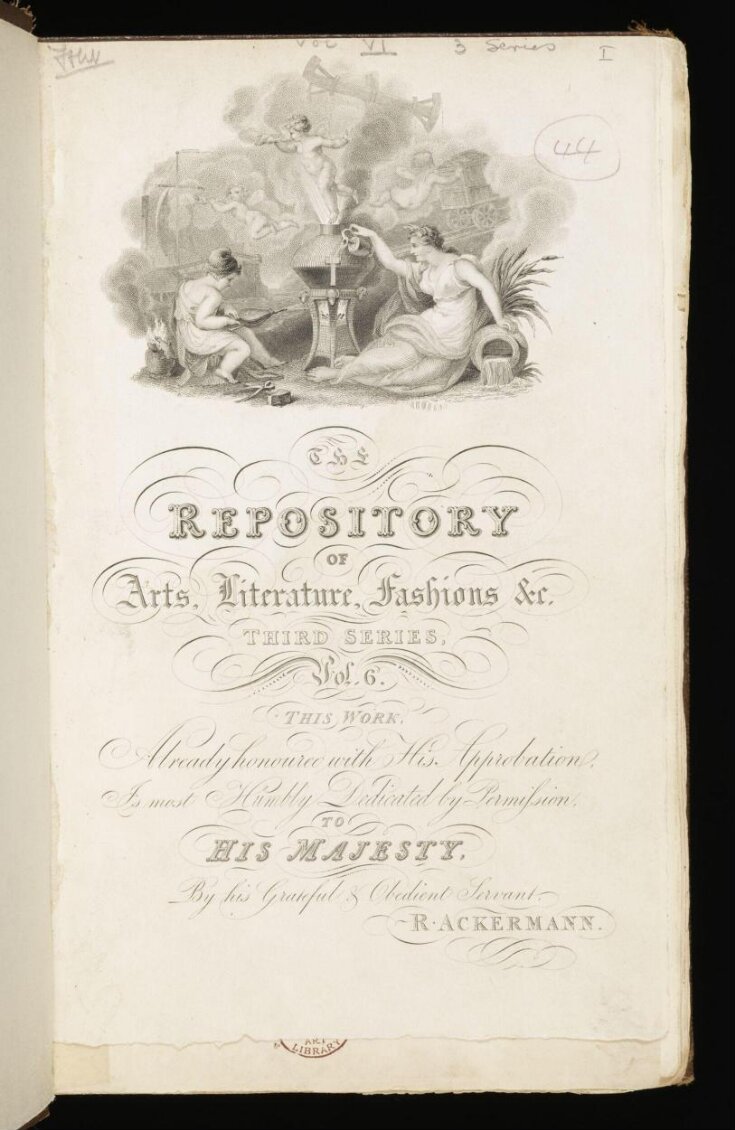 Vol VI
3 Series
I
44
THE
REPOSITORY
OF
Arts, Literature, Fashions &c.
THIRD SERIES,
Vol. 6.
THIS WORK,
Already honoured with His Approbation,
Is most Humbly Dedicated by Permission,
TO
HIS MAJESTY,
By his Grateful & Obedient Servant
R. ACKERMANN.
ART
LIBRARY